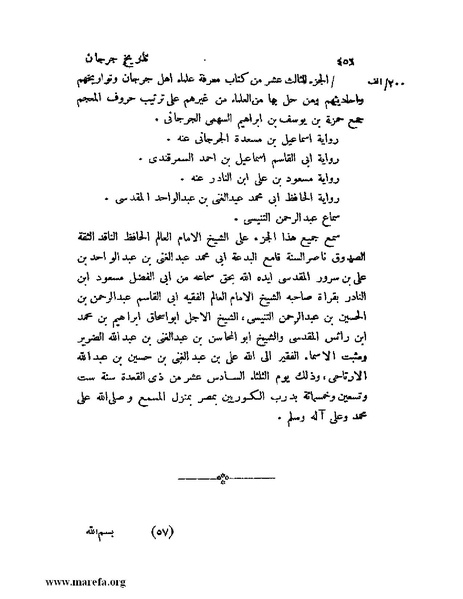 ٤٥٦ تاريخ جرجان
٢٠٠/الف / الجزء الثالث عشر من كتاب معرفة علماء اهل جرجان وتواريخهم
واحاديثهم ومن حل بها من العلماء من غيرهم على ترتيب حروف المعجم
جمع حمزة بن يوسف بن ابراهيم السهمى الجرجانى .
رواية اسماعيل بن مسعدة الجرجانى عنه .
رواية ابى القاسم اسماعيل بن احمد السمرقندى .
رواية مسعود بن على ابن النادر عنه .
رواية الحافظ ابى محمد عبدالغنى بن عبدالواحد المقدسى .
سماع عبدالرحمن التنيسى .
سمع جميع هذا الجزء على الشيخ الامام العالم الحافظ الناقد الثقة
الصدوق ناصرالسنة قامع البدعة ابى محمد عبدالغنى بن عبد الواحد بن
على بن سرور المقدسى ايده الله بحق سماعه من ابى الفضل مسعود ابن
النادر بقراة صاحبه الشيخ الامام العالم الفقيه ابى القاسم عبدالرحمن بن
الحسين بن عبدالرحمن التنيسى، الشيخ الاجل ابواسحاق ابراهيم بن محمد
ابن رائس المقدسى والشيخ ابو المحاسن بن عبدالغنى بن عبد الله الضرير
ومثبت الاسماء الفقير الى الله على بن عبد الغنى بن حسين بن عبدالله
الارتاحى، وذلك يوم الثلثاء السادس عشر من ذى القعدة سنة ست
وتسعين وخمسمائة بدرب الكوريين بمصر بمنزل المسمع وصلى الله على
محمد وعلى آله وسلم .
(٥٧) بسم الله
www.marefa.org